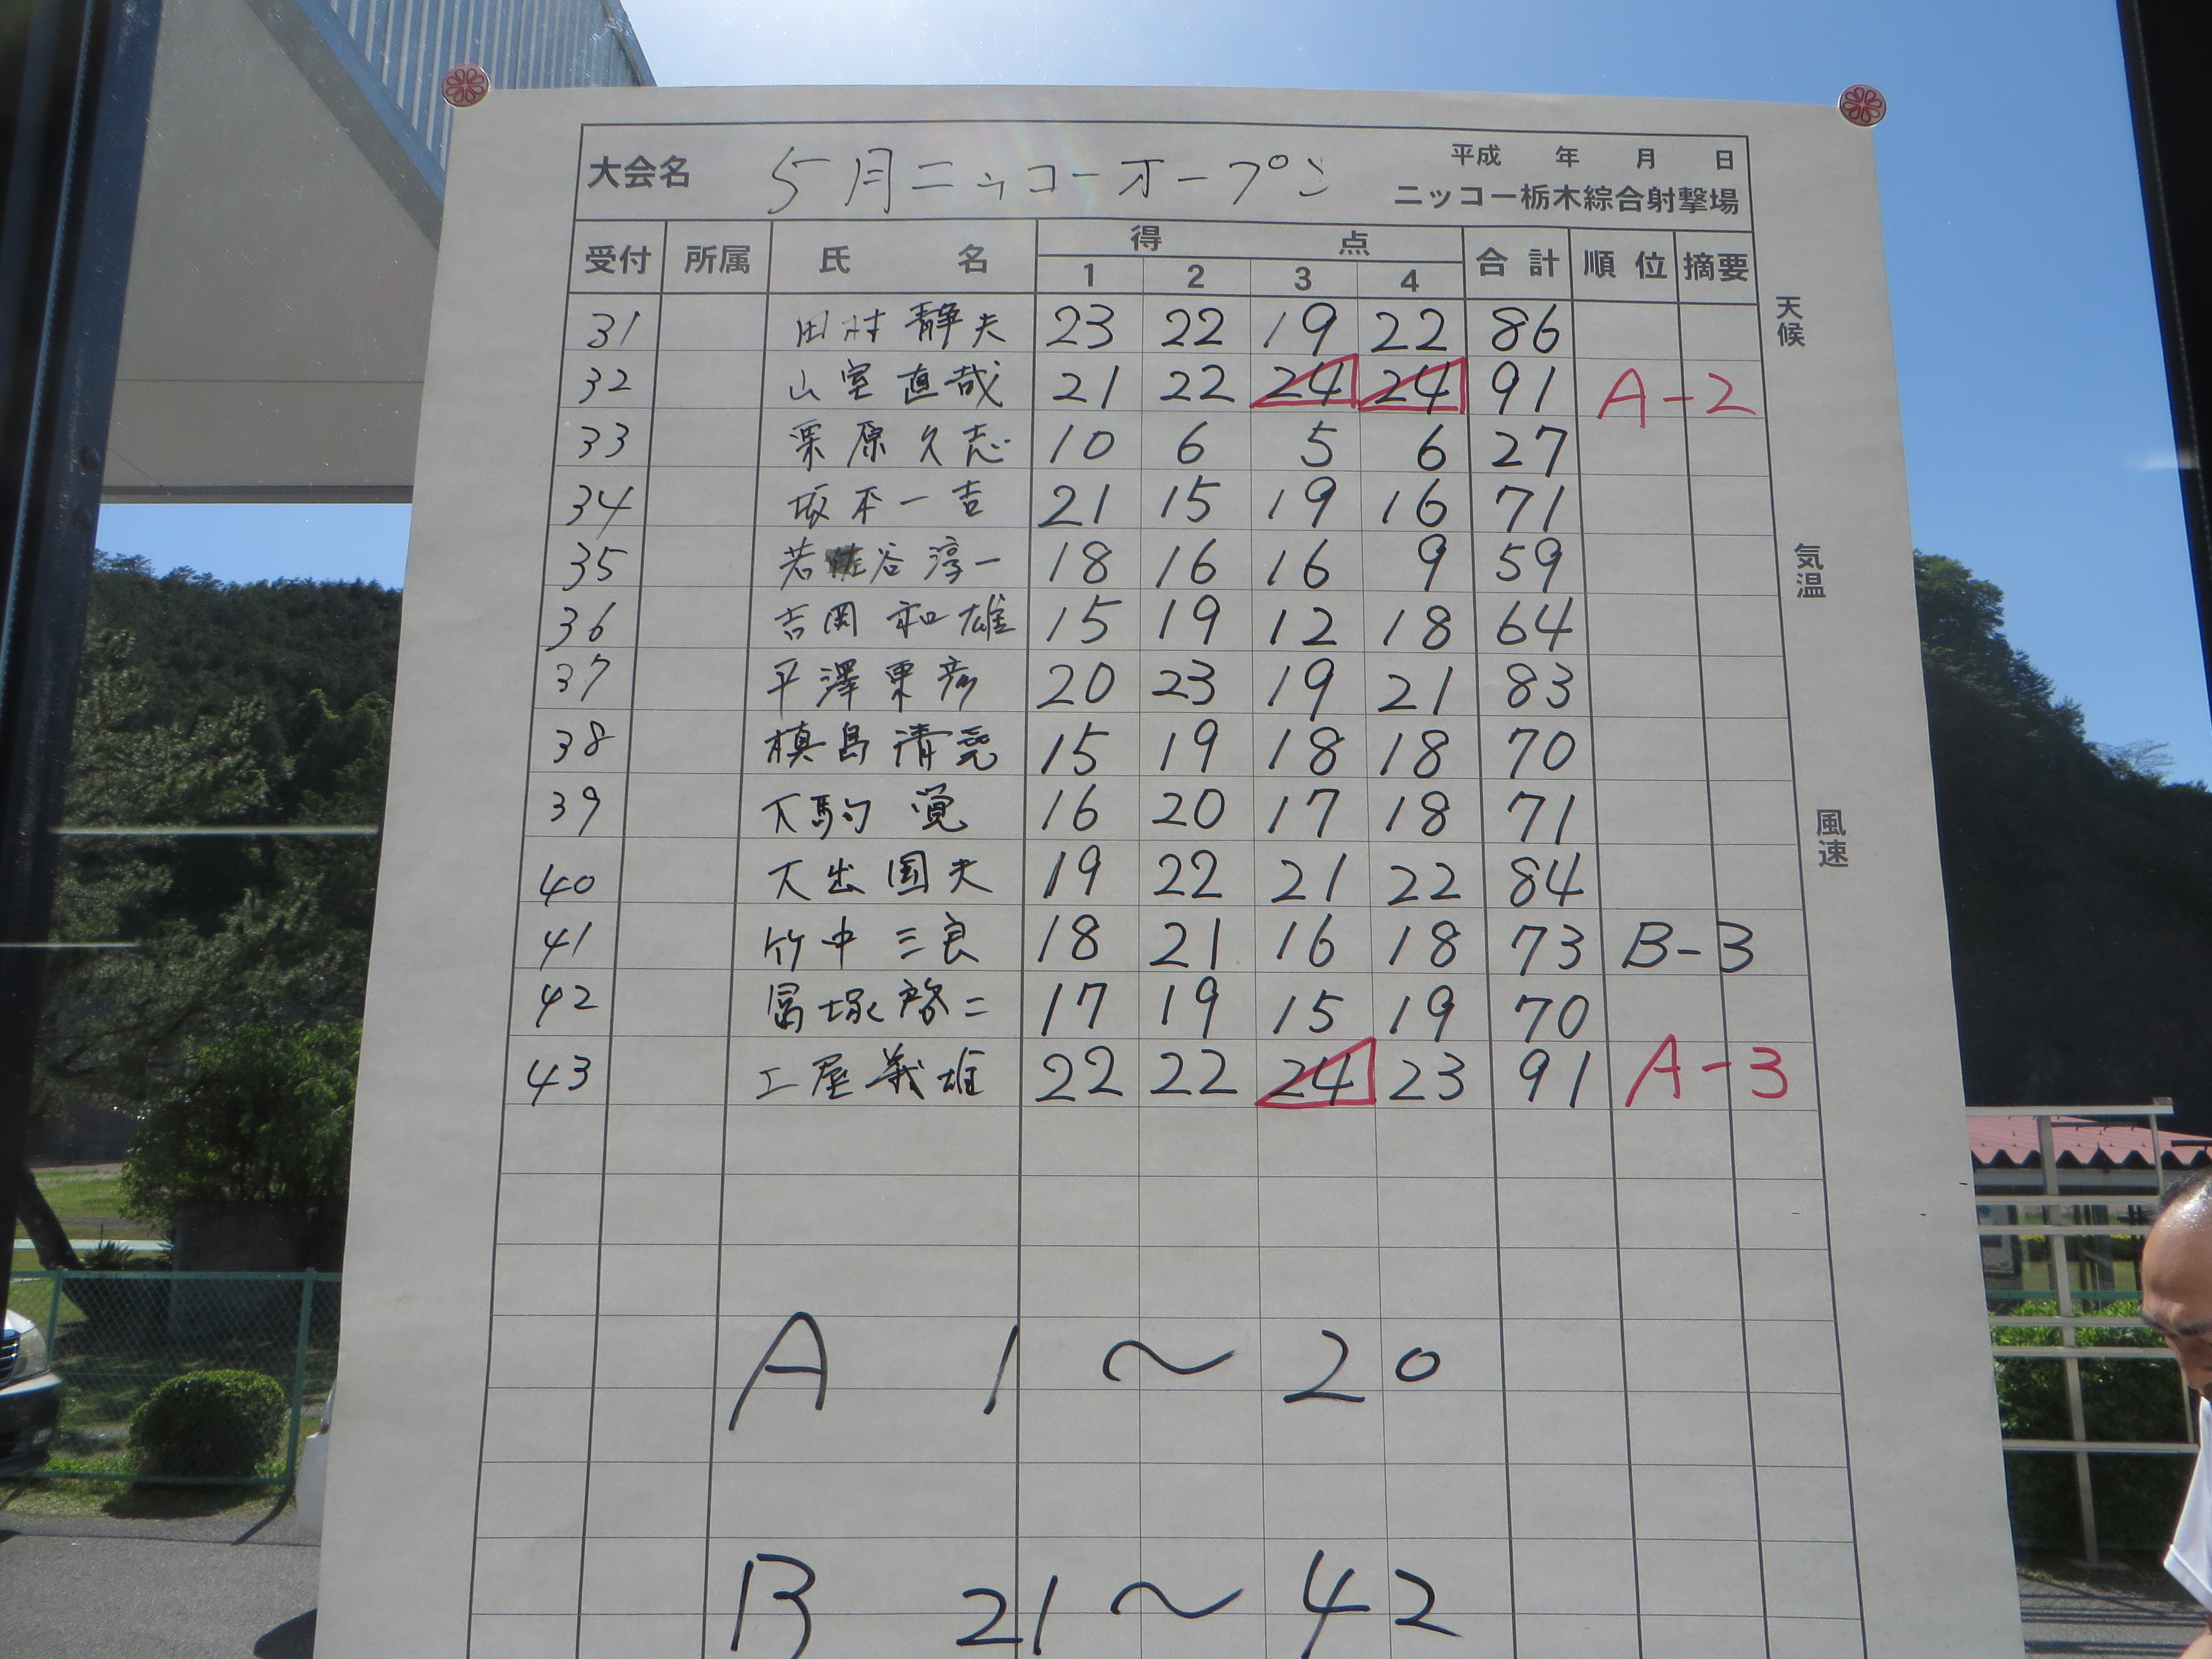 大会名 5月ニッコーオープン 平成 年 月 日
ニッコー栃木綜合射撃場
受付 所属 氏名 得点 合計 順位 摘要
1 2 3 4
31 田村静夫 23 22 19 22 86
32 山室直哉 21 22 24 24 91 A-2
33 栗原久志 10 6 5 6 27
34 坂本一吉 21 15 19 16 71
35 若谷淳一 18 16 16 9 59
36 吉岡和雄 15 19 12 18 64
37 平澤東彦 20 23 19 21 83
38 槙島清 15 19 18 18 70
39 大駒覚 16 20 17 18 71
40 大出国夫 19 22 21 22 84
41 竹中三良 18 21 16 18 73 B-3
42 冨塚啓二 17 19 15 19 70
43 工屋義雄 22 22 24 23 91 A-3
A 1〜20
B 21〜42
天候
気温
風速